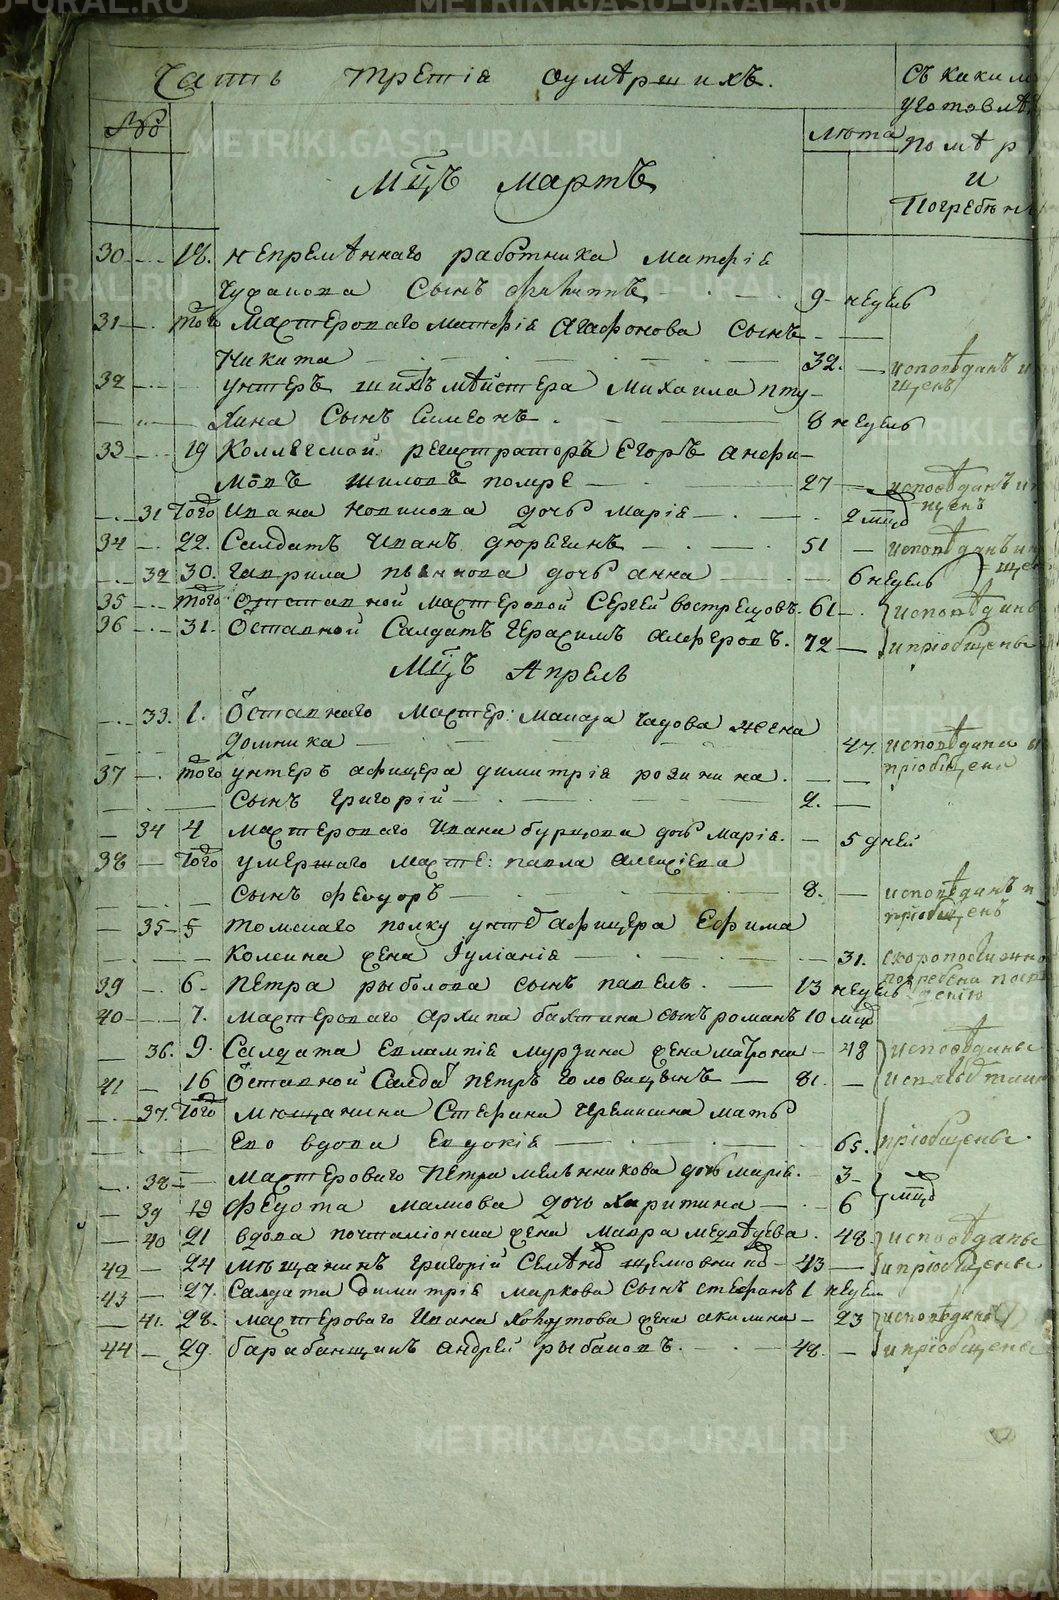 Часть третія оумѣршихъ.
Съ какимъ
уготовлѣ
помѣр
и
Погребѣн
№
Лѣта
Мцъ Мартъ
30 18. непремѣннаго работника Матфія
сынъ Филиппъ 9 недель
31 того Мастероваго Матфія Агафонова сынъ
Никита 32. исповѣданъ и
32 унтеръ шихтъ мѣйстера Михаила Пту-
хина сынъ Симеонъ 8 недель
33 19 Коллежской регистраторъ Егоръ Анфи-
мовъ Шиловъ помре 27 исповѣданъ и
31 того Ивана Новикова дочь Марія 2 мцъ
34 22. Салдатъ Иванъ Дюрягинъ 51 исповѣданъ и
32 30. Гаврила Пьянкова дочь Анна 6 недель
35 того Отставной мастеровой Сергей Вострецовъ. 61 исповѣданы
36 31. Оставной Салдатъ Герасимъ Алферовъ. 72 и пріобщены
Мцъ Апрель
33. 1. Оставнаго мастер: Макара Чадова жена
Домника 47. исповѣдана и
пріобщена
37 того унтеръ афицера Димитрія
сынъ Григорій 2.
34 4 мастероваго Ивана Бурцова дочь Марія. 5 дней
38 того умершаго масте: Павла Алексіева
сынъ Феодоръ 8. исповѣданъ и
пріобщенъ
35 5 Томскаго полку унтеръ афицера Ефима
жена Іуліанія 31. скоропостижно
погребена по
39 6 Петра Рыболова сынъ Павелъ. 13 недель
40 7. мастероваго Архипа Бахтина сынъ Романъ 10 мцъ
36. 9. Салдата Евлампія Мурзина жена Матрона 48 исповѣданы
41 16 Оставной Салдатъ Петръ Головацкинъ 81.
37. того мѣщанина Стефана Черемисина мать
ево вдова Евдокія 65. пріобщены.
38 мастероваго Петра Мельникова дочь Марія. 3
39 19 Федота Малкова дочь Харитина 6 мцъ
40 21 вдова почталіонска жена Мавра Медведева. 48 исповѣданы
42 24 Мѣщанинъ Григорій Семеновъ 43 и пріобщены
43 27. Салдата Димитрія Маркова сынъ Стефанъ 1 недели
41. 28. мастероваго Ивана Хохутова жена Акилина 23 исповѣданы
44 29. барабанщикъ Андрей Рыбаковъ. 48. и пріобщены
METRIKI.GASO-URAL.RU